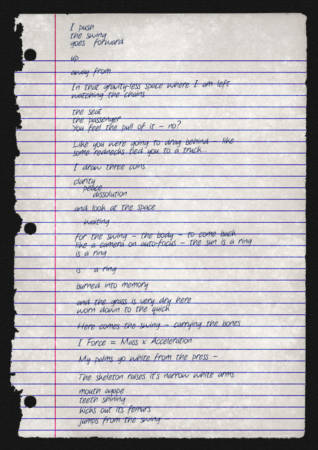 I push
the swing
goes forward
up
away from
In that gravity-less space where I am left
watching the chains
the seat
the passenger
You feel the pull of it – no?
Like you were going to drag behind – like
some rednecks tied you to a truck...
I draw three coins
clarity
peace
dissolution
and look at the space
waiting
for the swing – the body – to come back
like a camera on auto-focus – the sun is a ring
is a ring
is a ring
burned into memory
and the grass is very dry here
worn down to the quick
Here comes the swing – carrying the bones
I Force = Mass x Acceleration
My palms go white from the press –
The skeleton raises it's narrow white arms
mouth agape
teeth shining
kicks out its femurs
jumps from the swing